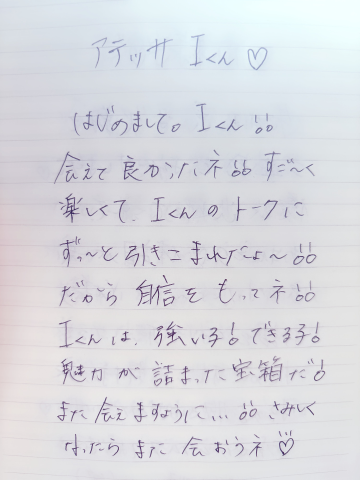 アテッサ Iくん♡
はじめまして。Iくん!!
会えて良かったネ!! すご〜く
楽しくて、Iくんのトークに
ずっ〜と引きこまれたよ〜!!
だから自信をもってネ!!
Iくんは、強い子!できる子!
魅力が詰まった宝箱だ!
また会えますように...!! さみしく
なったらまた会おうネ♡